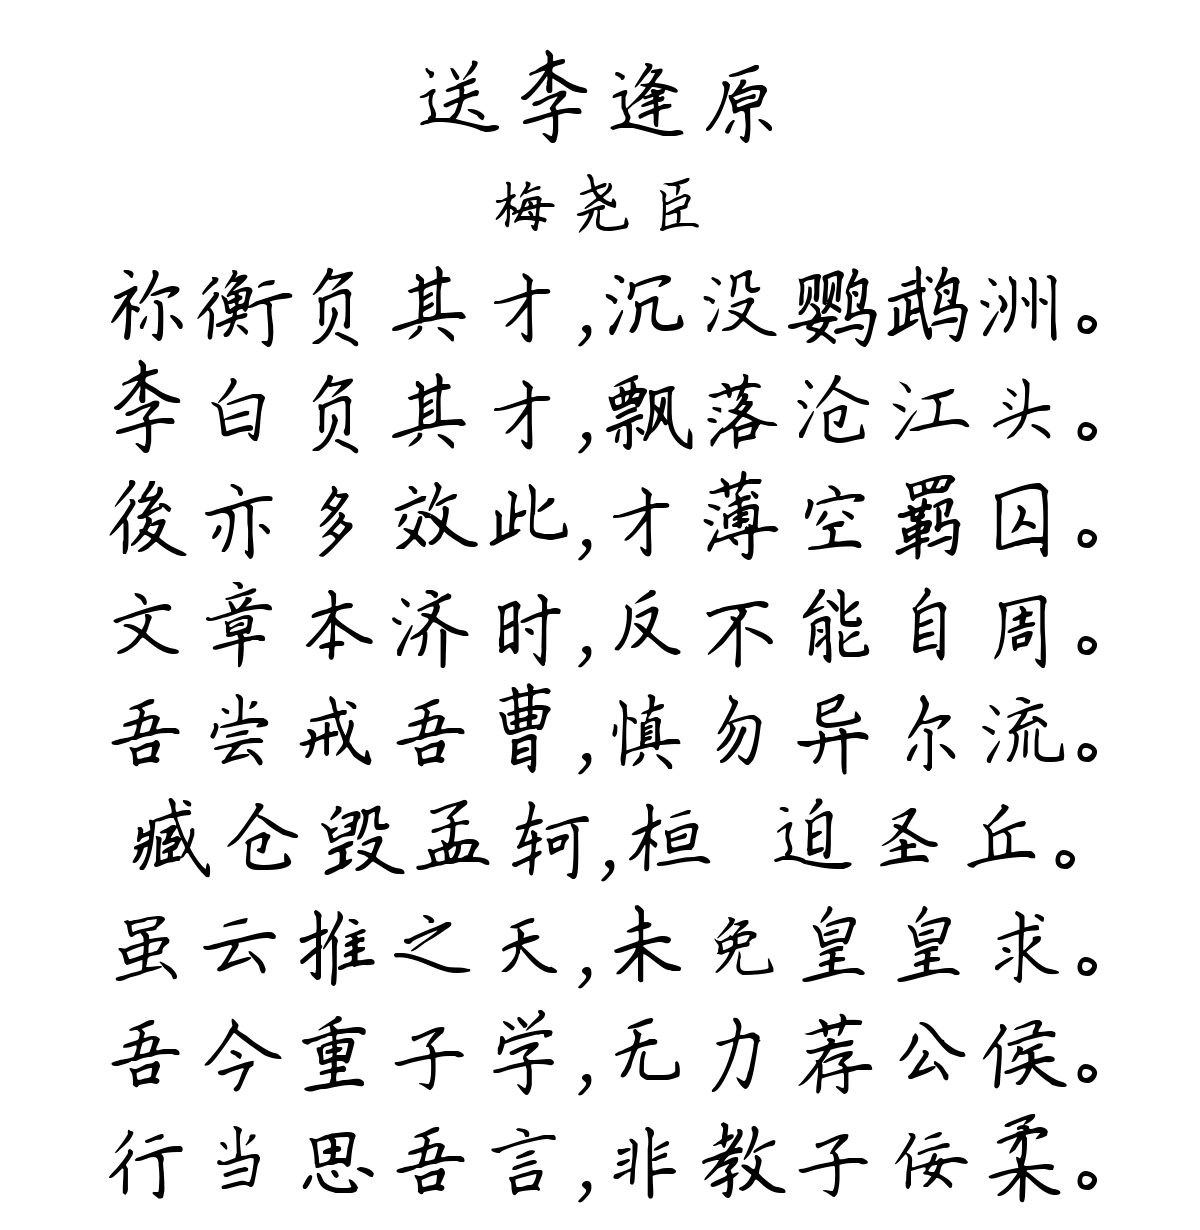 送李逢原
梅尧臣
祢衡负其才,沉没鹦鹉洲。
李白负其才,飘落沧江头。
後亦多效此,才薄空羁囚。
文章本济时,反不能自周。
吾尝戒吾曹,慎勿异尔流。
臧仓毁孟轲,桓 迫圣丘。
虽云推之天,未免皇皇求。
吾今重子学,无力荐公侯。
行当思吾言,非教子佞柔。